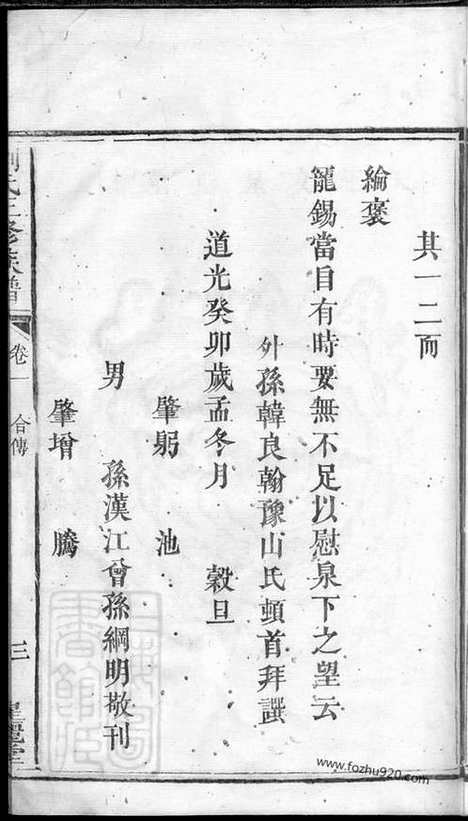 其一二而
綸褒
寵錫當目有時要無不足以慰泉下之望云
外孫韓良翰豫山氏頓首拜譔
道光癸卯歲孟冬月 穀旦
肇躬 池
男 孫漢江曾孫綱明敬刊
肇增 騰
氏三修族譜 卷一 合傳 三
www.fozhu920.com